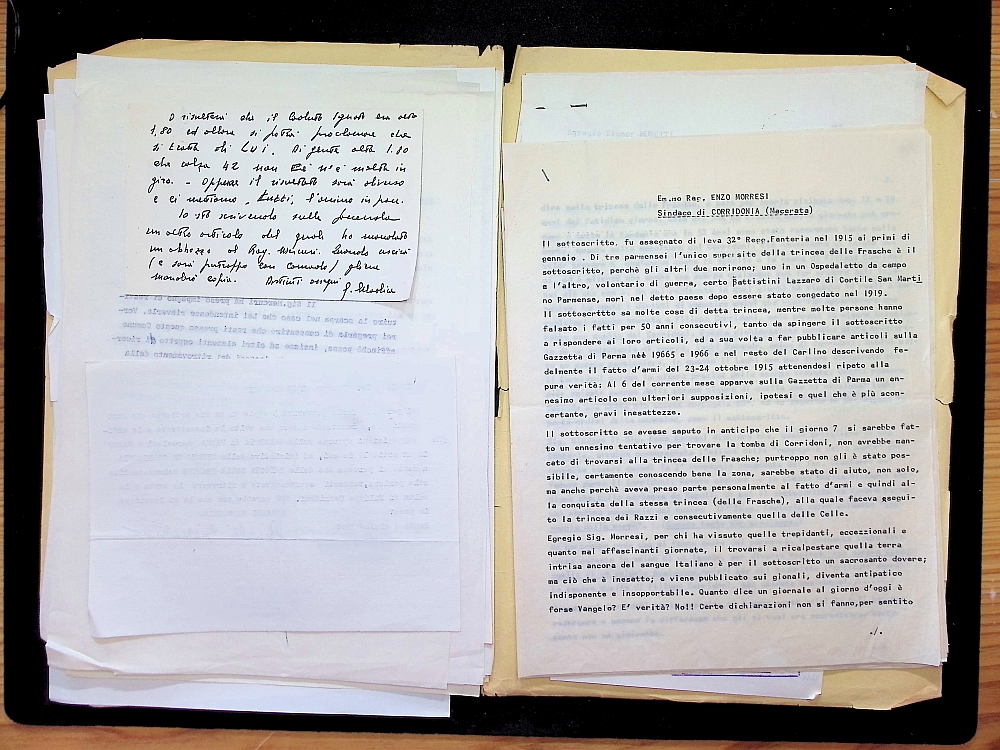 O risulterà che il Caduto Ignoto era alto
1,80 ed allora si potrà proclamare che
si tratta di LUI. Di gente alta 1.80
che calza 42 non ce n'è molta in
giro. - Oppure il risultato sarà diverso
e ci mettiamo, tutti, l'animo in pace.
Io sto scrivendo sulla faccenda
un altro articolo del quale ho mandato
un abbozzo al Rag. Mercuri. Quando uscirà
(e sarà purtroppo con comodo) gliene
manderò copia. Distinti ossequi
Em.mo Rag. ENZO MORRESI
Sindaco di CORRIDONIA (Macerata)
Il sottoscritto, fu assegnato di leva 32° Regg.Fanteria nel 1915 ai primi di
gennaio . Di tre parmensi l'unico superstite della trincea delle Frasche è il
sottoscritto, perchè gli altri due morirono; uno in un Ospedaletto da campo
e l'altro, volontario di guerra, certo Battistini Lazzaro di Cortile San Marti
no Parmense, morì nel detto paese dopo essere stato congedato nel 1919.
Il sottoscritto sa molte cose di detta trincea, mentre molte persone hanno
falsato i fatti per 50 anni consecutivi, tanto da spingere il sottoscritto
a rispondere ai loro articoli, ed a sua volta a far pubblicare articoli sulla
Gazzetta di Parma nel 19665 e 1966 e nel resto del Carlino descrivendo fe-
delmente il fatto d'armi del 23-24 ottobre 1915 attenendosi ripeto alla
pura verità: Al 6 del corrente mese apparve sulla Gazzetta di Parma un en-
nesimo articolo con ulteriori supposizioni, ipotesi e quel che è più scon-
certante, gravi inesattezze.
Il sottoscritto se avesse saputo in anticipo che il giorno 7 si sarebbe fat-
to un ennesimo tentativo per trovare la tomba di Corridoni, non avrebbe man-
cato di trovarsi alla trincea delle Frasche; purtroppo non gli è stato pos-
sibile, certamente conoscendo bene la zona, sarebbe stato di aiuto, non solo,
ma anche perchè aveva preso parte personalmente al fatto d'armi e quindi al-
la conquista della stessa trincea (delle Frasche), alla quale faceva seguei-
to la trincea dei Razzi e consecutivamente quella delle Celle.
Egregio Sig. Morresi, per chi ha vissuto quelle trepidanti, eccezionali e
quanto mai affascinanti giornate, il trovarsi a ricalpestare quella terra
intrisa ancora del sangue Italiano è per il sottoscritto un sacrosanto dovere;
ma ciò che è inesatto; e viene pubblicato sui gionali, diventa antipatico
indisponente e insopportabile. Quanto dice un giornale al giorno d'oggi è
forse Vangelo? E' verità? No!! Certe dichiarazioni non si fanno,per sentito
./.